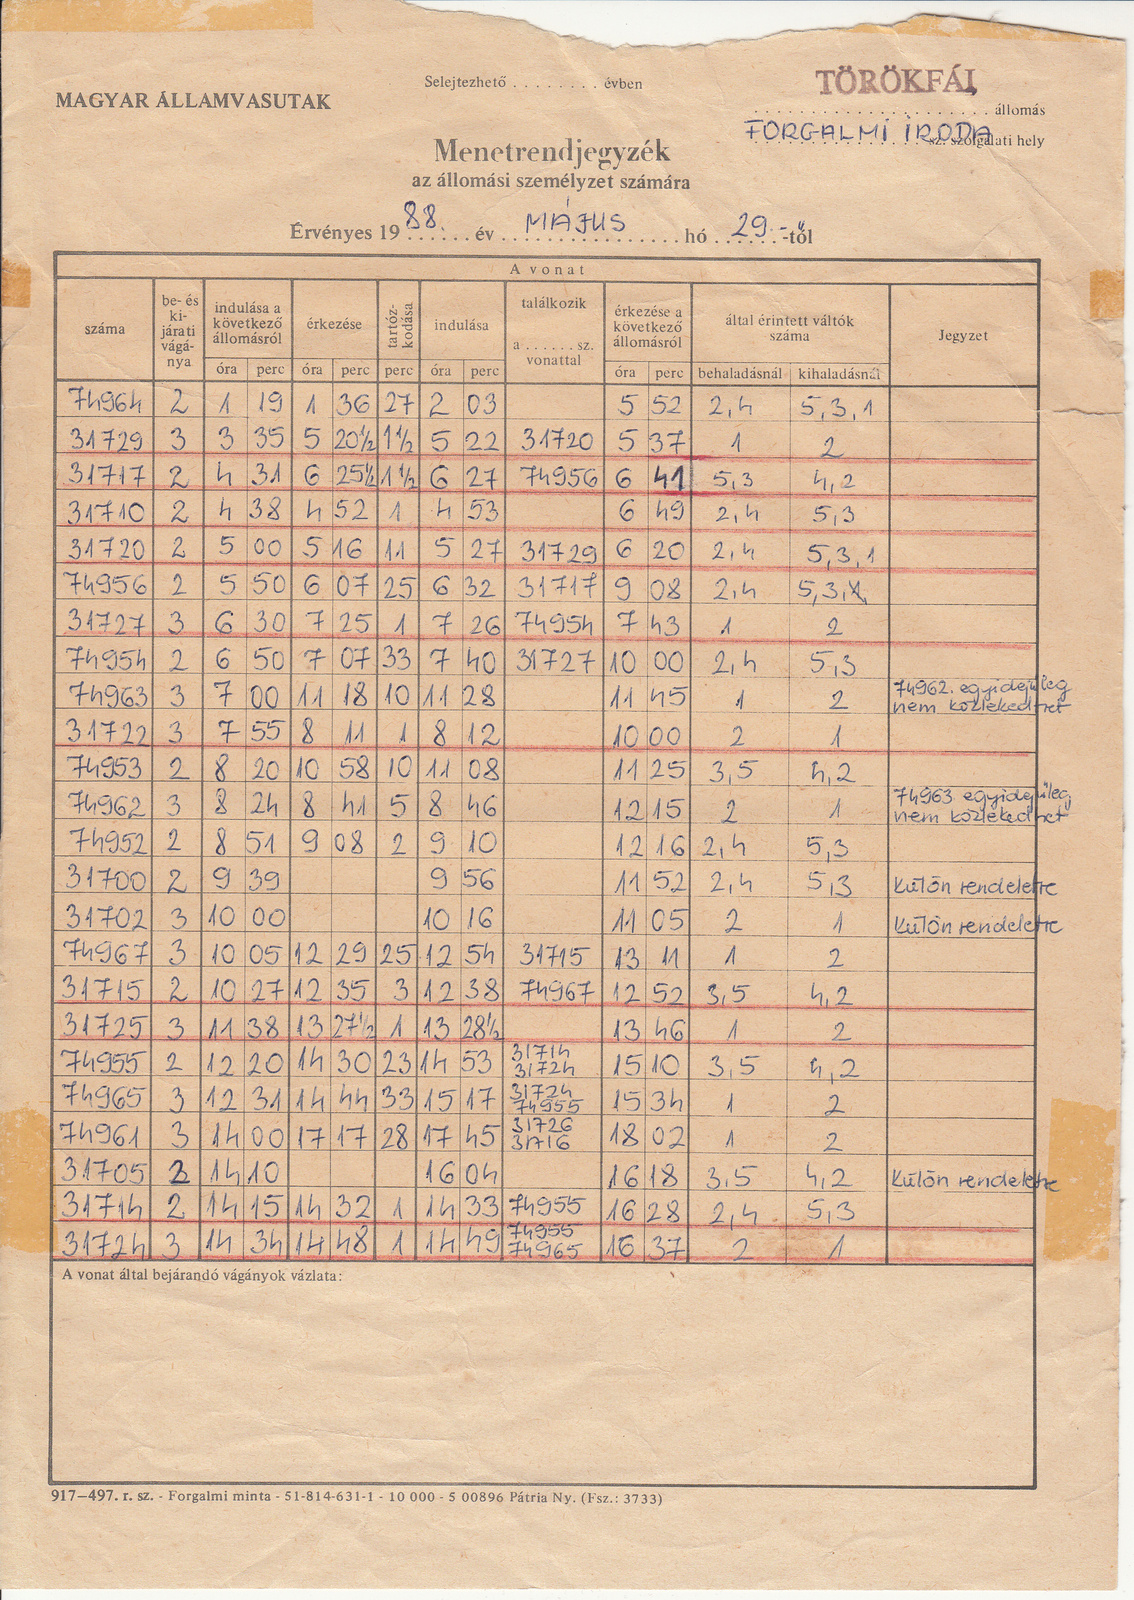 Selejtezhető . . . . . . . . évben
TÖRÖKFÁI
MAGYAR ÁLLAMVASUTAK
állomás
FORGALMI IRODA
sz. szolgálati hely
Menetrendjegyzék
az állomási személyzet számára
Érvényes 19 88. év MÁJUS hó 29.-től
A vonat
száma
be- és kijárati vágánya
indulása a következő állomásról
érkezése
tartózkodása
indulása
találkozik a . . . . . . sz. vonattal
érkezése a következő állomásról
által érintett váltók száma
Jegyzet
óra perc óra perc perc óra perc óra perc behaladásnál kihaladásnál
74964 2 1 19 1 36 27 2 03 5 52 2,4 5,3,1
31729 3 3 35 5 20½ 1½ 5 22 31720 5 37 1 2
31717 2 4 31 6 25½ 1½ 6 27 74956 6 41 5,3 4,2
31710 2 4 38 4 52 1 4 53 6 49 2,4 5,3
31720 2 5 00 5 16 11 5 27 31729 6 20 2,4 5,3,1
74956 2 5 50 6 07 25 6 32 31717 9 08 2,4 5,3
31727 3 6 30 7 25 1 7 26 74954 7 43 1 2
74954 2 6 50 7 07 33 7 40 31727 10 00 2,4 5,3
74963 3 7 00 11 18 10 11 28 11 45 1 2 74962. egyidejűleg nem közlekedhet
31722 3 7 55 8 11 1 8 12 10 00 2 1
74953 2 8 20 10 58 10 11 08 11 25 3,5 4,2
74962 3 8 24 8 41 5 8 46 12 15 2 1 74963 egyidejűleg nem közlekedhet
74952 2 8 51 9 08 2 9 10 12 16 2,4 5,3
31700 2 9 39 9 56 11 52 2,4 5,3 Külön rendeletre
31702 3 10 00 10 16 11 05 2 1 Külön rendeletre
74967 3 10 05 12 29 25 12 54 31715 13 11 1 2
31715 2 10 27 12 35 3 12 38 74967 12 52 3,5 4,2
31725 3 11 38 13 27½ 1 13 28½ 13 46 1 2
74955 2 12 20 14 30 23 14 53 31714 31724 15 10 3,5 4,2
74965 3 12 31 14 44 33 15 17 31724 74955 15 34 1 2
74961 3 14 00 17 17 28 17 45 31726 31716 18 02 1 2
31705 2 14 10 16 04 16 18 3,5 4,2 Külön rendeletre
31714 2 14 15 14 32 1 14 33 74955 16 28 2,4 5,3
31724 3 14 34 14 48 1 14 49 74955 74965 16 37 2 1
A vonat által bejárandó vágányok vázlata:
917–497. r. sz. - Forgalmi minta - 51-814-631-1 - 10 000 - 5 00896 Pátria Ny. (Fsz.: 3733)